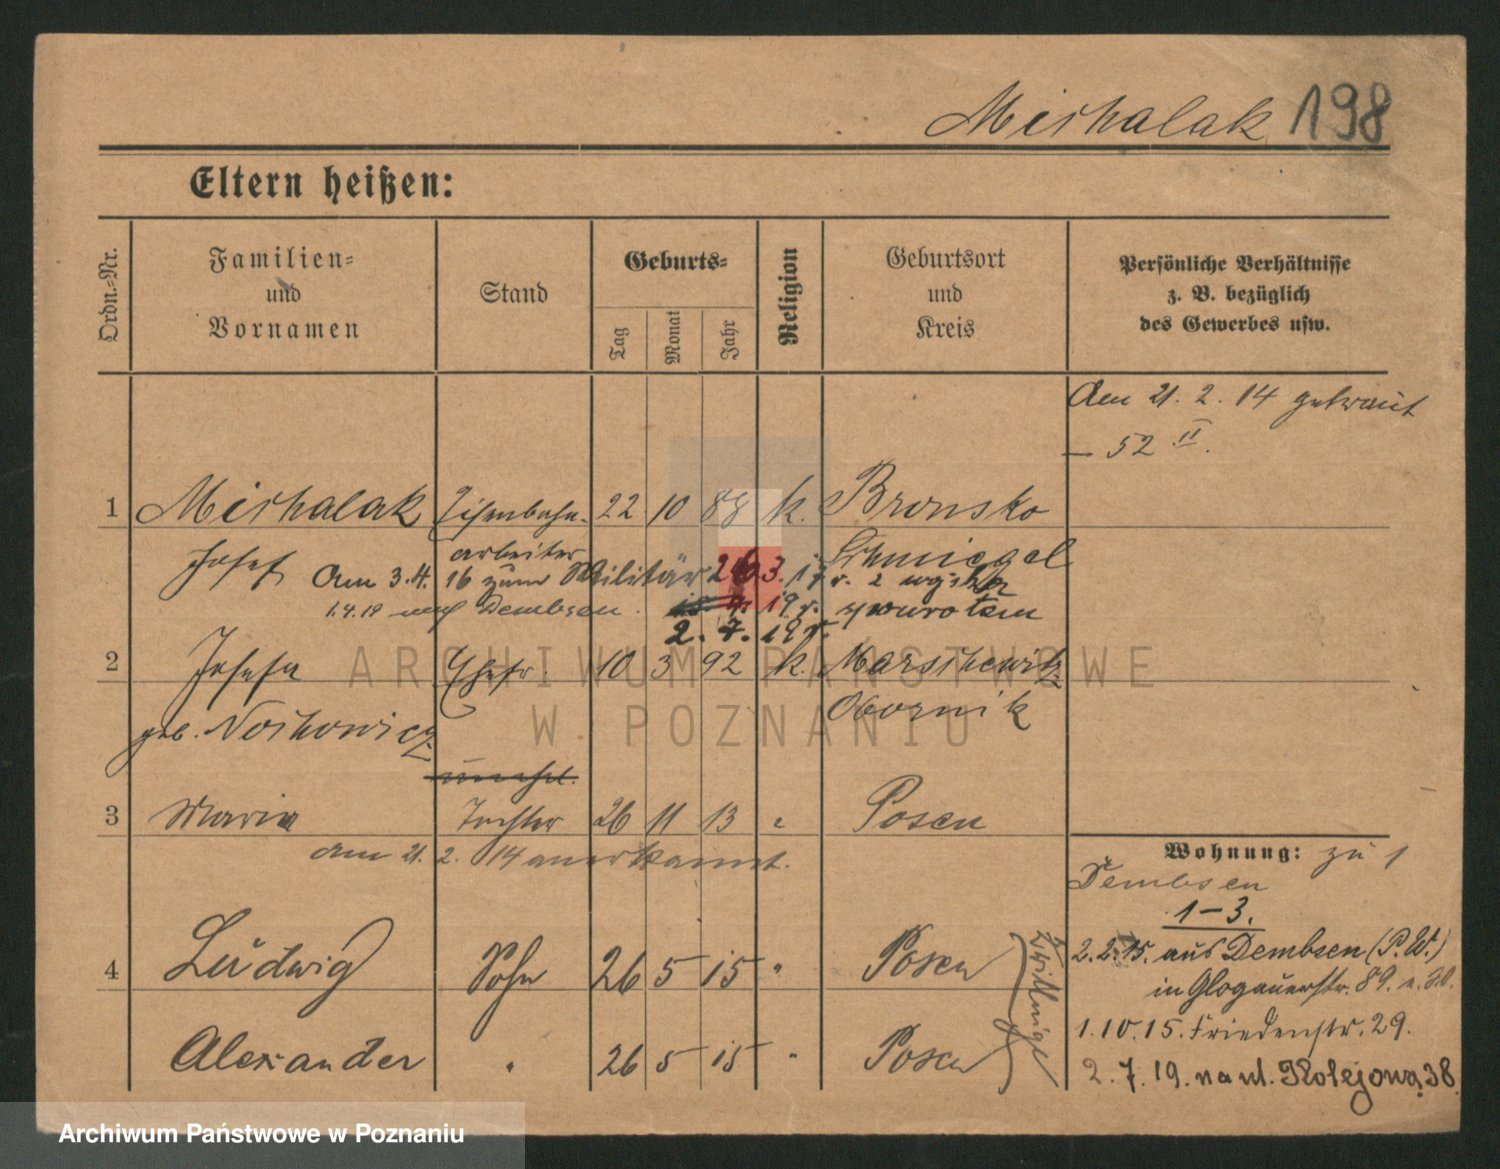 Michalak 198
Eltern heißen:
Ordn.-Nr.
Familien-
und
Vornamen
Stand
Geburts-
Tag
Monat
Jahr
Religion
Geburtsort
und
Kreis
Persönliche Verhältnisse
z. B. bezüglich
des Gewerbes usw.
Am 21. 2. 14 getraut
— 52 II.
1 Michalak Eisenbahn- 22 10 88 k. Bronsko
Josef arbeiter Schmiegel
Am 3.4. 16 zum Militär 26.3. 17
1.4.19 nach Dembsen. 19 r. z powrotem
2. 7. 19 r.
2 Josefa Ehefr 10 3 92 k. Marschewitz
geb. Nochowicz Obornik
unehel.
3 Maria Tochter 26 11 13 " Posen
am 21. 2. 14 anerkannt.
Wohnung: zu 1
Dembsen
1-3.
4 Ludwig Sohn 26 5 15 " Posen
Alexander " 26 5 15 " Posen
Zwillinge
2.2.15. aus Dembsen (P.W.)
in Glogauerstr. 89.
1.10.15. Friedenstr. 29.
2.7.19. na ul. Kolejową 38
ARCHIWUM PAŃSTWOWE
W POZNANIU
Archiwum Państwowe w Poznaniu